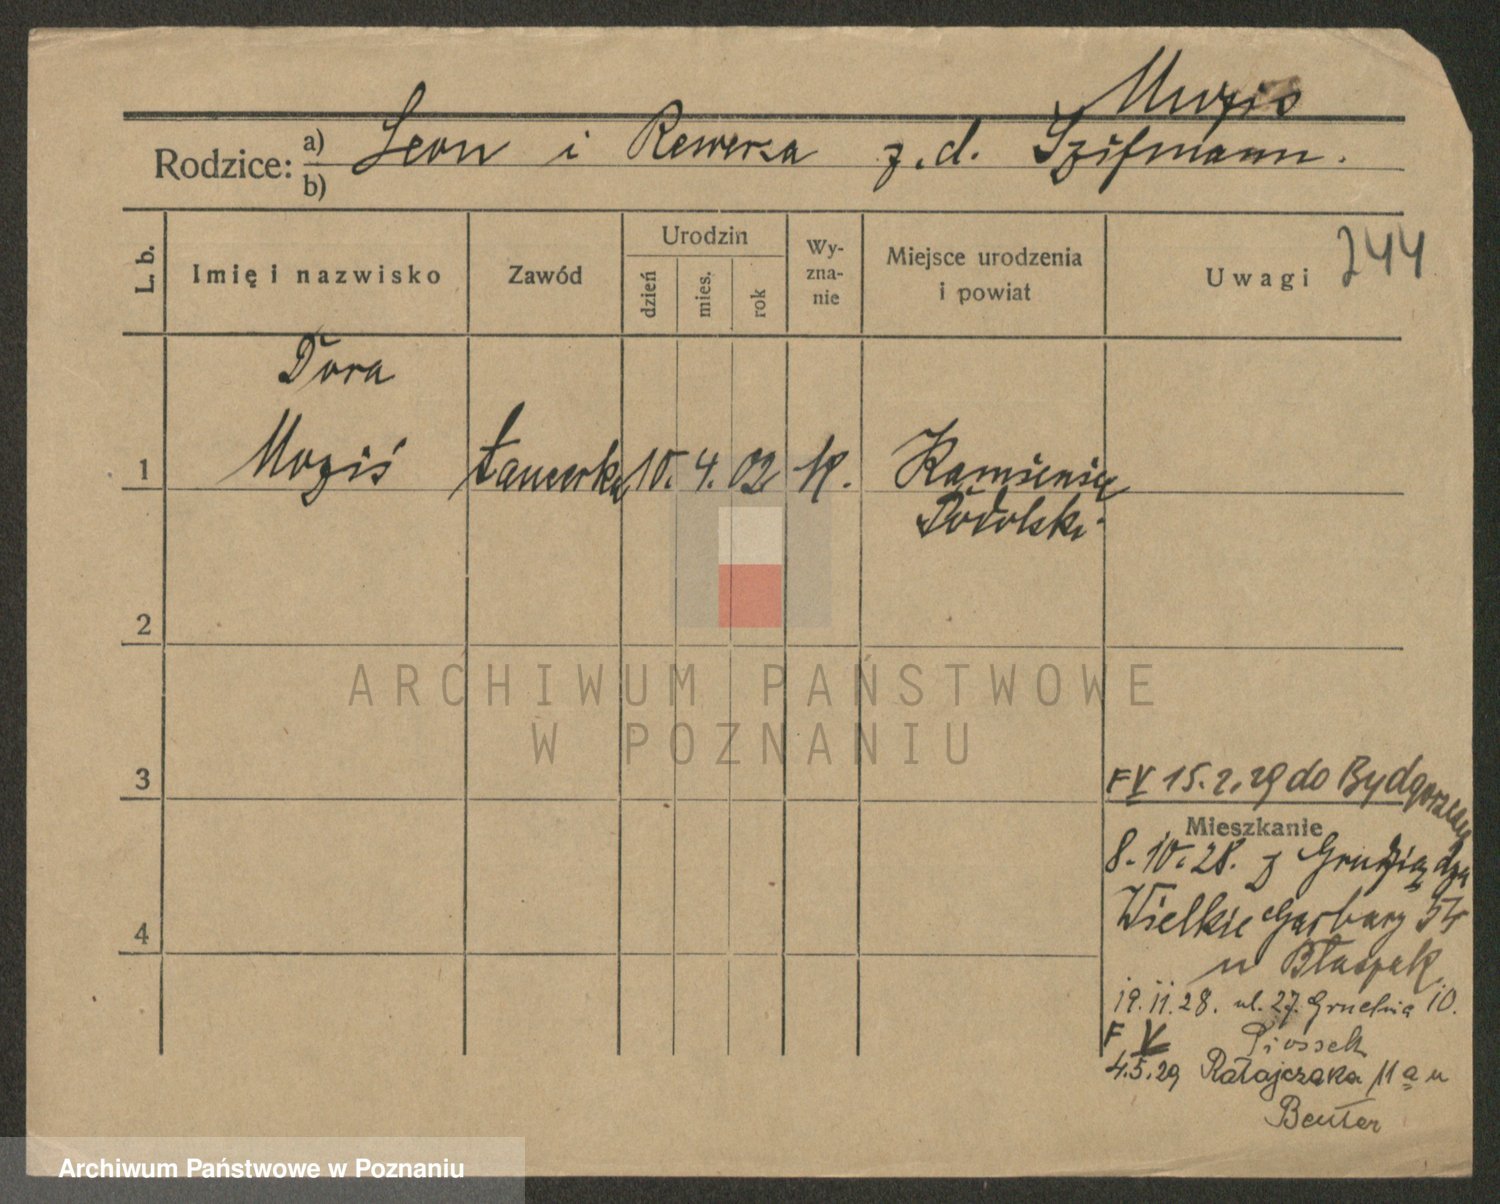 Muzis
Rodzice: a) Leon i Rewerza z.d. Szifmann.
b)
L. b.
Imię i nazwisko
Zawód
Urodzin
dzień
mies.
rok
Wy-
zna-
nie
Miejsce urodzenia
i powiat
Uwagi 244
Dora
1 Muziś tancerka 10. 4. 02 K.
Kamieniec
Podolski.
2
ARCHIWUM PAŃSTWOWE
W POZNANIU
3
F V 15.2.29 do Bydgoszczy
Mieszkanie
8.10.28. z Grudziądza
Wielkie Garbary 54
u Błaszak
4
19.11.28. ul. 27. Grudnia 10.
F V Piossek
4.5.29 Ratajczaka 11a u
Beuter
Archiwum Państwowe w Poznaniu